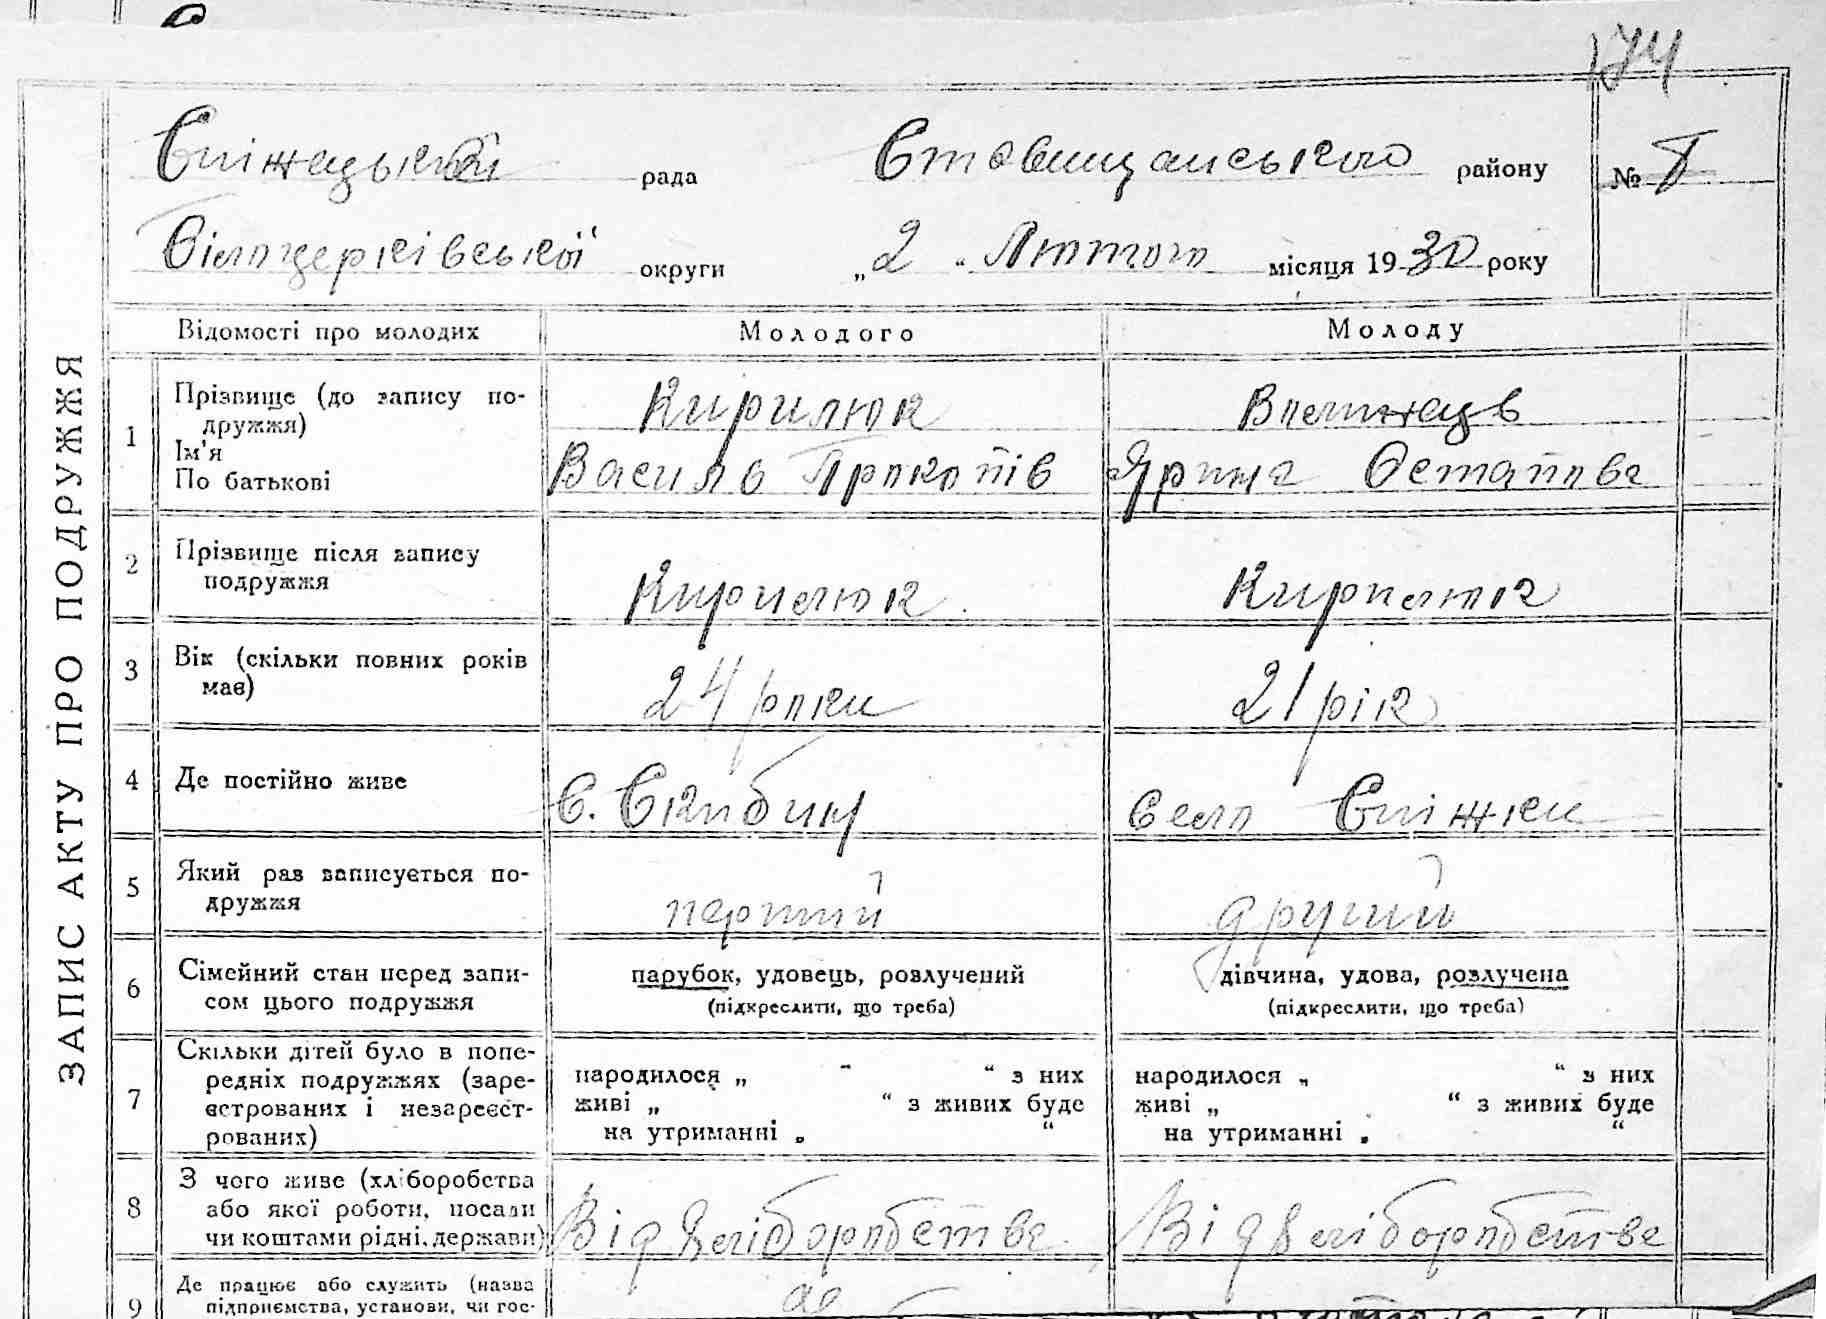 174
Сніжацький рада Ставищанського району № 8
Білоцерківської округи „2" Лютого місяця 1930 року
ЗАПИС АКТУ ПРО ПОДРУЖЖЯ
Відомості про молодих Молодого Молоду
1 Прізвище (до запису по-
дружжя)
Ім'я
По батькові
Кирилюк
Василь Прокопів
Ярина Остапова
2 Прізвище після запису
подружжя
Кирилюк Кирилюк
3 Вік (скільки повних років
має)
24 роки 21 рік
4 Де постійно живе
с. Скибин село Сніжки
5 Який раз записується по-
дружжя
перший другий
6 Сімейний стан перед запи-
сом цього подружжя
парубок, удовець, розлучений
(підкреслити, що треба)
дівчина, удова, розлучена
(підкреслити, що треба)
7 Скільки дітей було в попе-
редніх подружжях (заре-
єстрованих і незареєст-
рованих)
народилося „ " з них
живі „ " з живих буде
на утриманні „ "
народилося „ " з них
живі „ " з живих буде
на утриманні „ "
8 З чого живе (хліборобства
або якої роботи, посади
чи коштами рідні, держави)
Від хліборобства Від хліборобства
9 Де працює або служить (назва
підприємства, установи, чи гос-